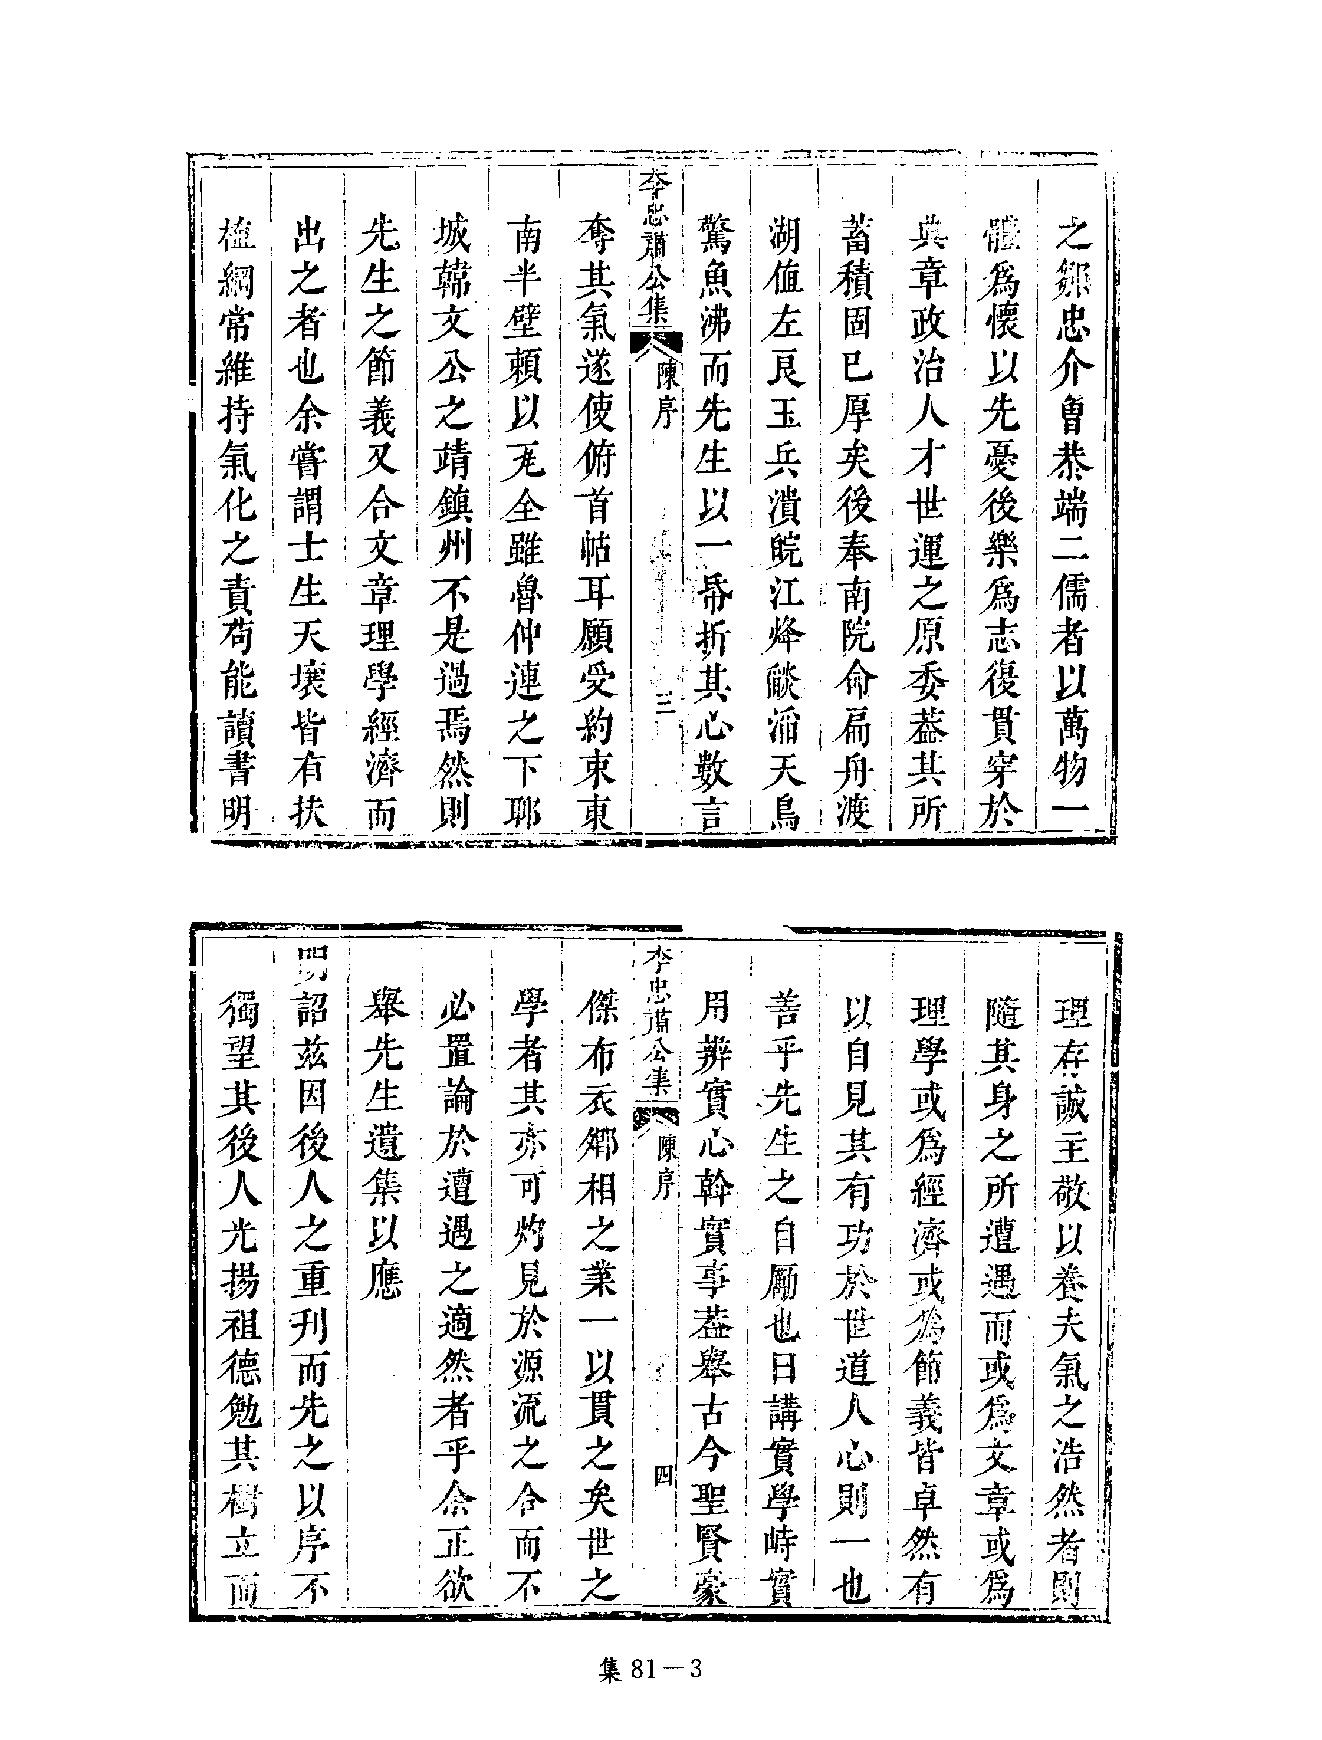 之鄒忠介曹恭端二儒者以萬物一
體爲懷以先憂後樂爲志復貫穿於
典章政治人才世運之原委葢其所
蓄積固已厚矣後奉南院命扁舟渡
湖値左艮玉兵潰皖江烽燄滔天鳥
驚魚沸而先生以一帋折其心數言
李忠肅公集
陳序
三
奪其氣遂使俯首帖耳願受約束東
南半壁頼以兂全雖魯仲連之下聊
城韓文公之靖鎮州不是過焉然則
先生之節義又合文章理學經濟而
出之者也余嘗謂士生天壤皆有扶
植綱常維持氣化之責苟能讀書明
理存誠主敬以養夫氣之浩然者則
隨其身之所遭遇而或爲文章或爲
理學或爲經濟或爲節義皆卓然有
以自見其有功於世道人心則一也
善乎先生之自勵也曰講實學峙實
用辦實心幹實事葢舉古今聖賢豪
李忠肅公集
陳序
四
傑布衣卿相之業一以貫之矣世之
學者其亦可灼見於源流之合而不
必置論於遭遇之適然者乎余正欲
舉先生遺集以應
明詔兹因後人之重刋而先之以序不
獨望其後人光揚祖德勉其樹立而
集81－3